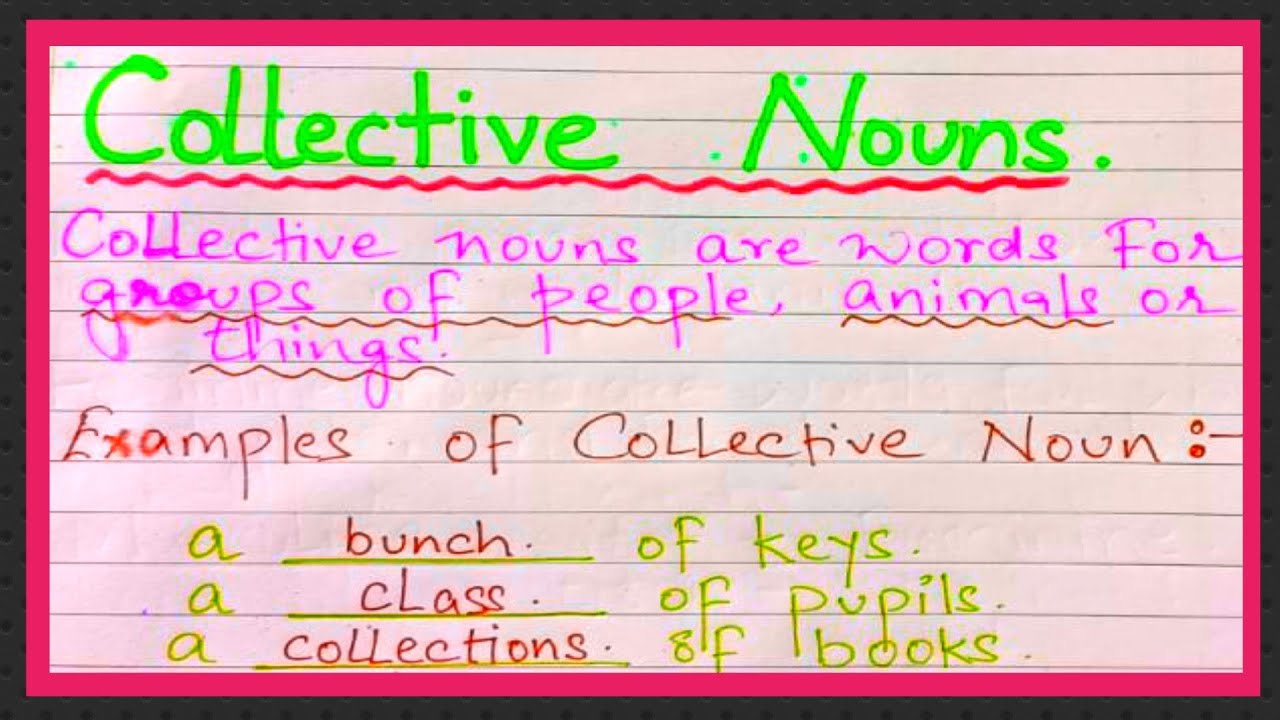 Collective Nouns.
Collective nouns are words For
groups of people, animals or
things.
Examples of Collective Noun :-
a bunch. of keys.
a class. of pupils.
a collections. of books.